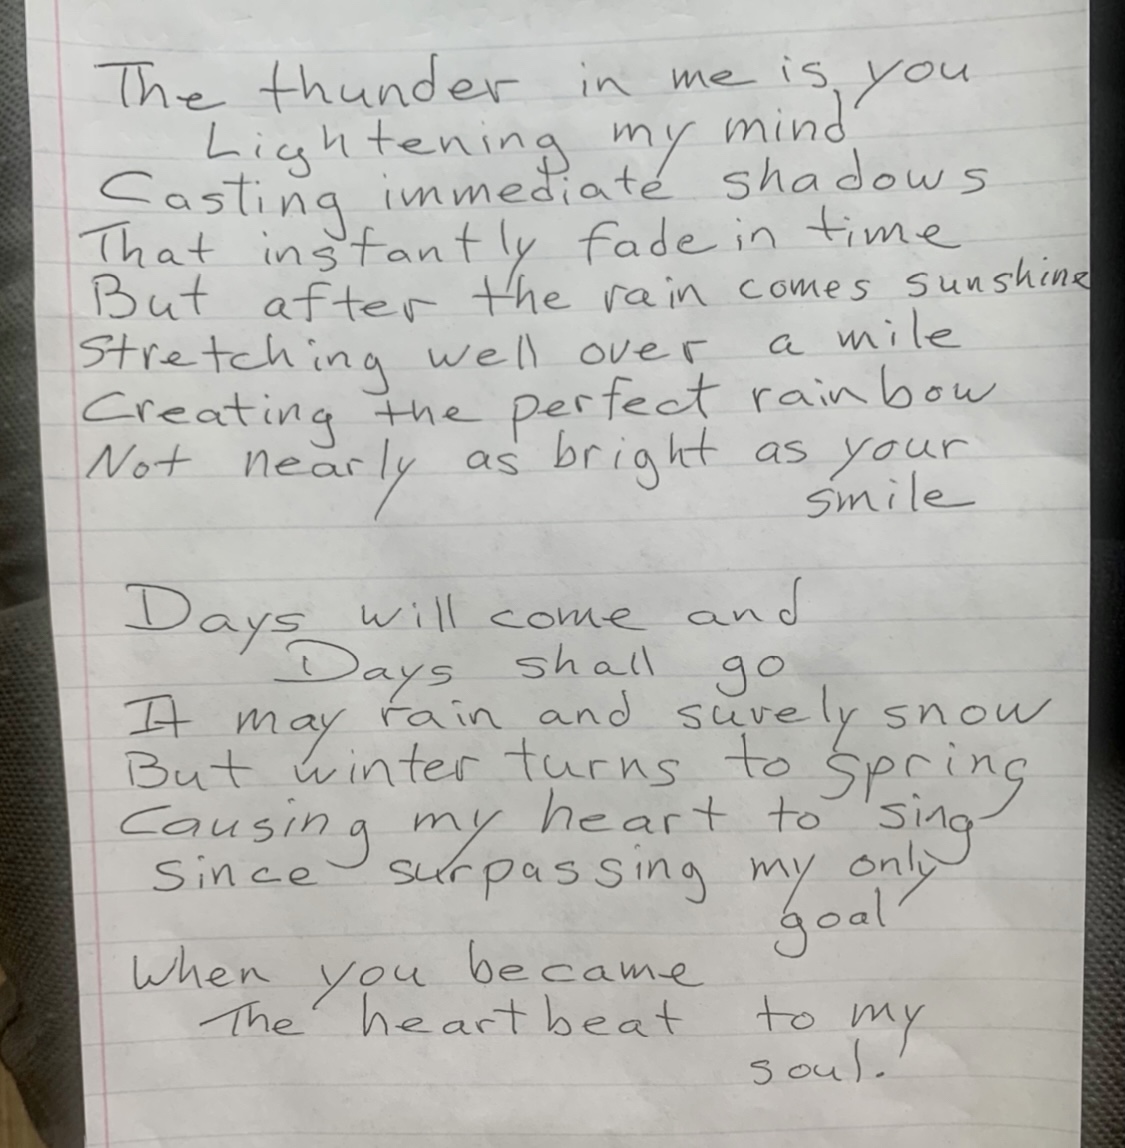 The thunder in me is you
Lightening my mind
Casting immediate shadows
That instantly fade in time
But after the rain comes sunshine
Stretching well over a mile
Creating the perfect rainbow
Not nearly as bright as your
smile
Days will come and
Days shall go
It may rain and surely snow
But winter turns to Spring
Causing my heart to sing
Since surpassing my only
goal
When you became
The heartbeat to my
soul.